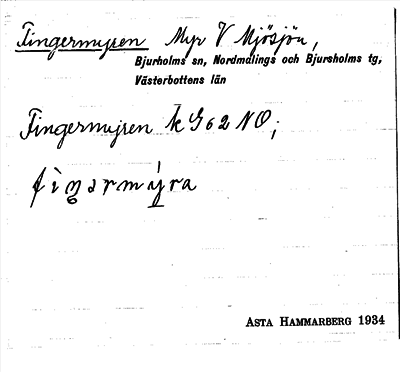 Fingermyren Myr V Mjösjön,
Bjurholms sn, Nordmalings och Bjursholms tg,
Västerbottens län
Fingermyren k G 62 NO;
fìŋərmy̆ra
ASTA HAMMARBERG 1934